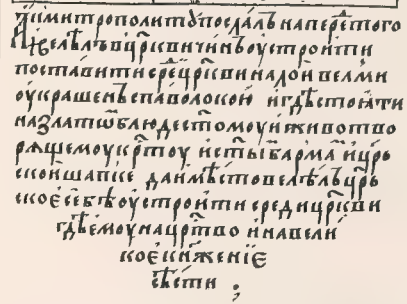 ҃ а҃имитрополитꙋпосла́лънапере́стого
и҆желѣлъвъцр҃квичи́нъоу҆строи́ти
поставитисрⷣецр҃квинало́йвелми
оу҆крашенъспаволокой игдѣстоѧ́ти
назлатѡⷨблюдестⷪмоуи҆животво
рѧщемоукрⷭтоу и҆стыⷨбарма́ⷨ и҆цр҃ь
скойшапке даи҆мѣстовелѣ́лъцр҃ь
скоеⷭ҇себѣоу҆строи́тисредицр҃кви
гдѣе҆моунацрⷭ҇тво и҆навели́
коекнѧженїе
сѣсти ⁏